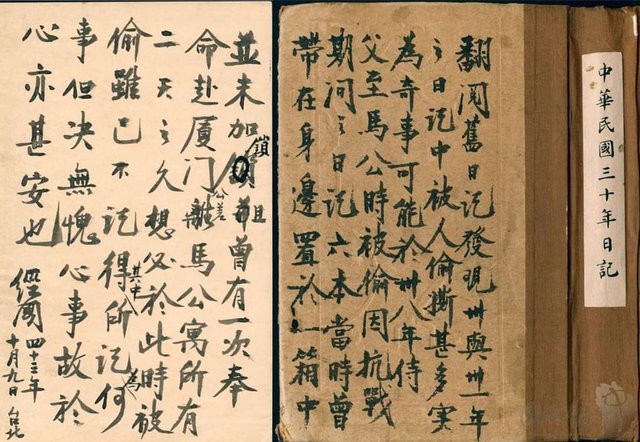 中華民國三十年日記
翻閱舊日記發現卅與卅一年
之日記中被人偷撕甚多實
為奇事可能於卅八年侍
父至馬公時被偷因抗戰
期间之日記六本當時曾
帶在身邊置於一箱中
並未加鎖並且曾有一次奉
命赴厦门公差離馬公寓所有
二天之久想必於此時被
偷雖已不記得其中所記為何
事但决無愧心事故於
心亦甚安也
經國 四十三年
十月九日 台北